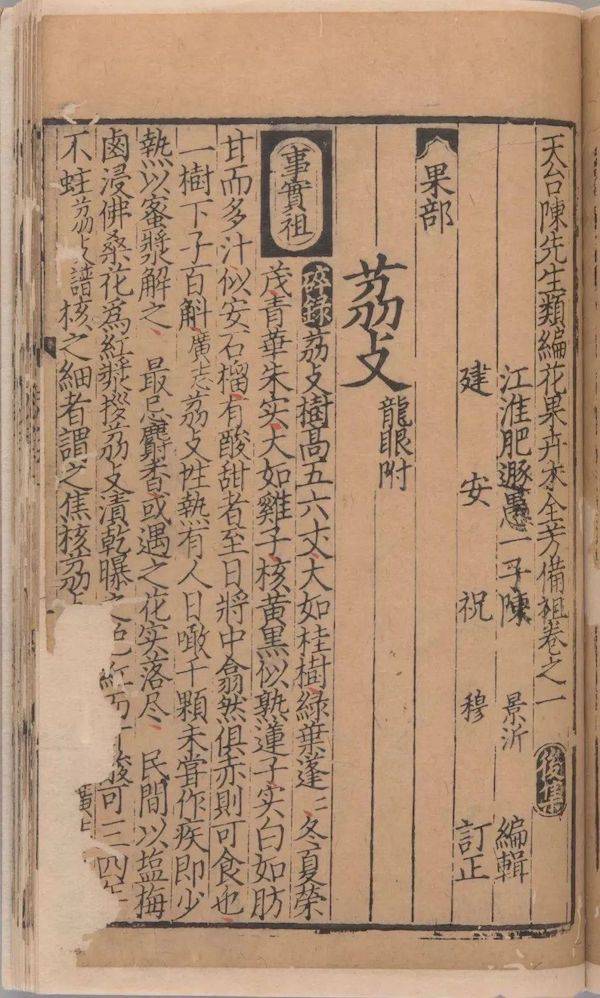 天台陳先生類編花果卉木全芳備祖卷之一 後集
江淮肥遯愚一子陳 景沂 編輯
建安祝 穆 訂正
果部
荔攴 龍眼附
事實祖
碎錄 荔攴樹高五六丈大如桂樹綠葉蓬〻冬夏榮
茂青華朱实大如雞子核黃黑似熟蓮子实白如肪
甘而多汁似安石榴有酸甜者至日將中翕然俱赤則可食也
一樹下子百斛廣志荔攴性熱有人日噉千顆未嘗作疾即少
熱以蜜漿解之 最忌麝香或遇之花实落尽 民間以塩梅
鹵浸佛桑花為紅漿投荔攴漬乾曝之色紅 可三四年
不蛀荔攴譜核之細者謂之焦核荔 廣